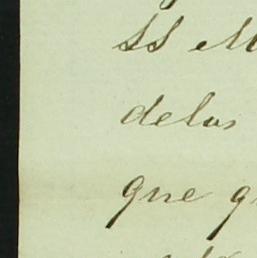 SS M
delos
que q